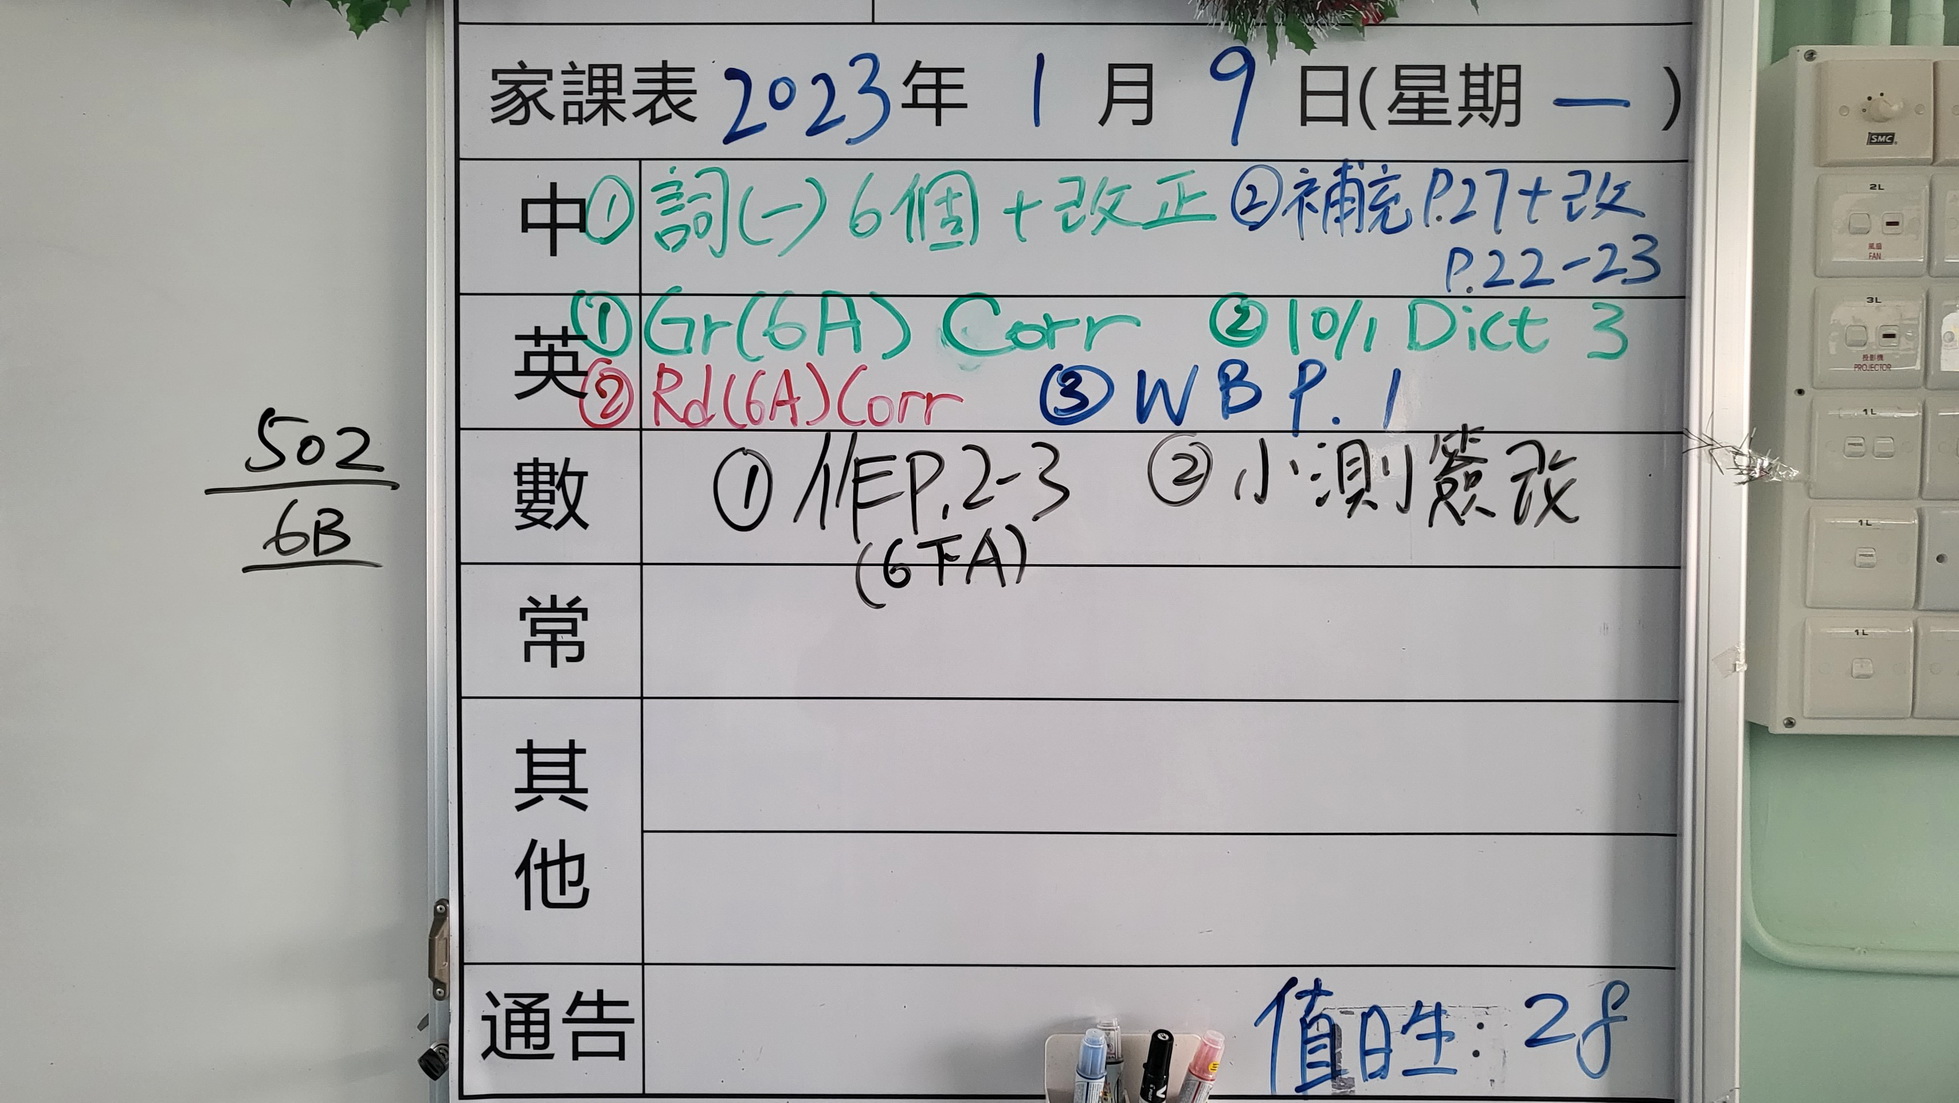 家課表 2023年 1月 9日(星期一)
中 ① 詞(一) 6個 + 改正 ② 補充 P.27 + 改
P.22-23
英 ① Gr(6A) Corr ② 10/1 Dict 3
② Rd(6A) Corr ③ WB P. 1
數 ① 作 P.2-3 ② 小測簽改
(6下A)
常
其他
通告
值日生: 28
502
6B
SMC
2L
風扇
FAN
3L
投影機
PROJECTOR
1L
1L
1L